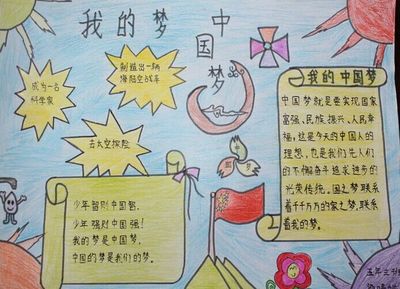 我的梦 中国梦
成为一名
科学家
制造出一辆
海陆空战车
去太空探险
少年智则中国智,
少年强则中国强!
我的梦是中国梦,
中国的梦是我们的梦。
我的中国梦
中国梦就是要实现国家
富强、民族振兴、人民幸
福,这是今天的中国人的
理想,也是我们先人们
的不懈奋斗追求进步的
光荣传统。国之梦联系
着千千万万的家之梦,联系
着我的梦。
五年三班